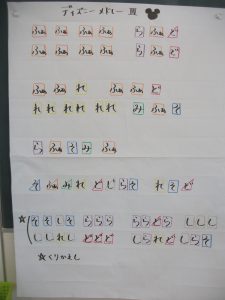 ディズニーメドレー
ふぁ ふぁ ふぁ ふぁ ら ふぁ ど
ふぁ ふぁ ふぁ ふぁ ら ふぁ ど
ふぁ ふぁ れ ふぁ ふぁ ど
れ れ れ れ れ れ み ふぁ そ
ら ふぁ そ み ふぁ
そ ふぁ み れ ど ら そ れ そ ど
☆ そ そ し そ ら ら ら ら ら ど ら し し し
し し れ し ど ど ど し れ ど し ら そ
☆くりかえし